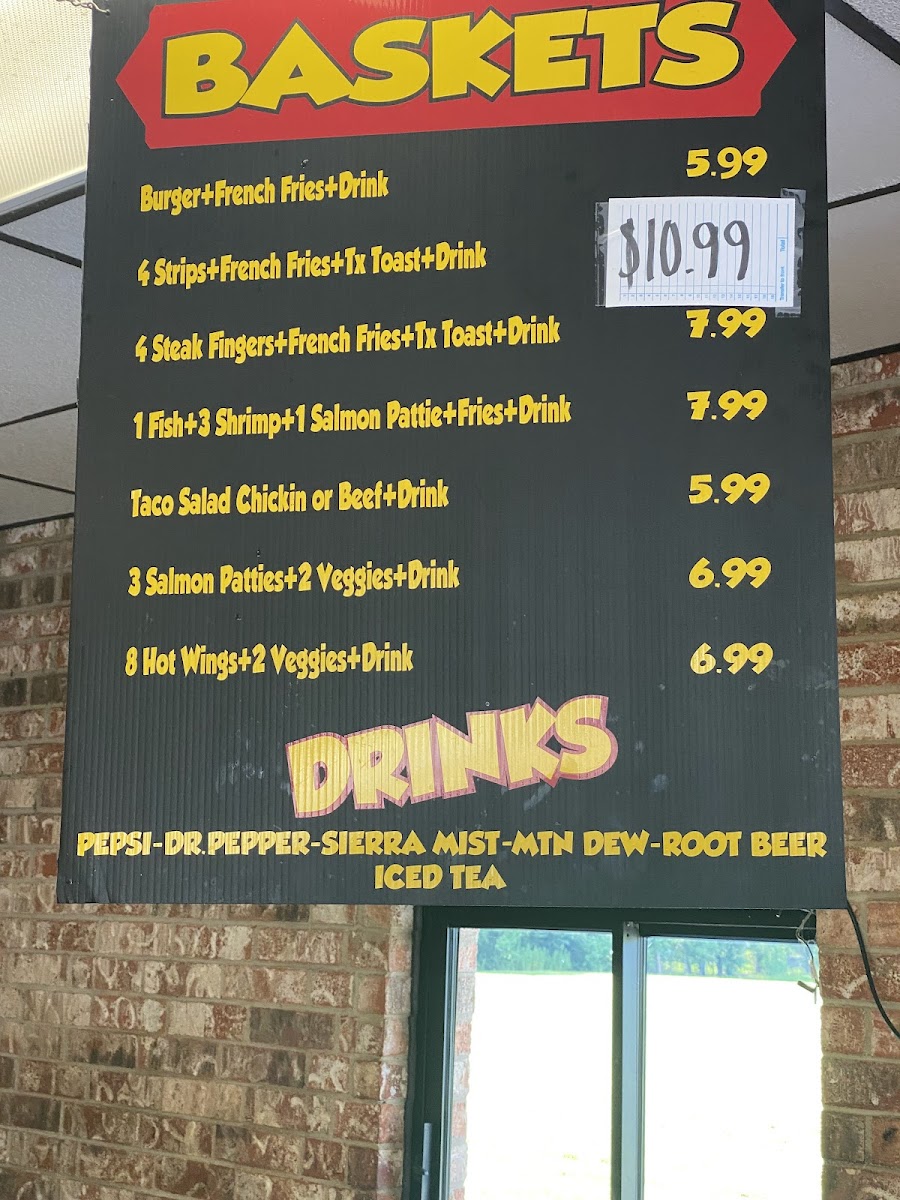 BASKETS
Burger+French Fries+Drink 5.99
4 Strips+French Fries+Tx Toast+Drink $10.99
4 Steak Fingers+French Fries+Tx Toast+Drink 7.99
1 Fish+3 Shrimp+1 Salmon Pattie+Fries+Drink 7.99
Taco Salad Chickin or Beef+Drink 5.99
3 Salmon Patties+2 Veggies+Drink 6.99
8 Hot Wings+2 Veggies+Drink 6.99
DRINKS
PEPSI-DR.PEPPER-SIERRA MIST-MTN DEW-ROOT BEER
ICED TEA